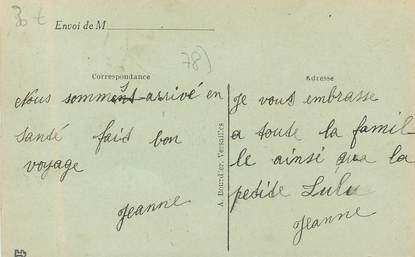 Envoi de M
78)
Correspondance
Nous sommes arrivé en
santé fait bon
voyage
Jeanne
A. Bourdier, Versailles
Adresse
Je vous embrasse
a toute la famil
le ainsi qua la
petite Lulu
Jeanne